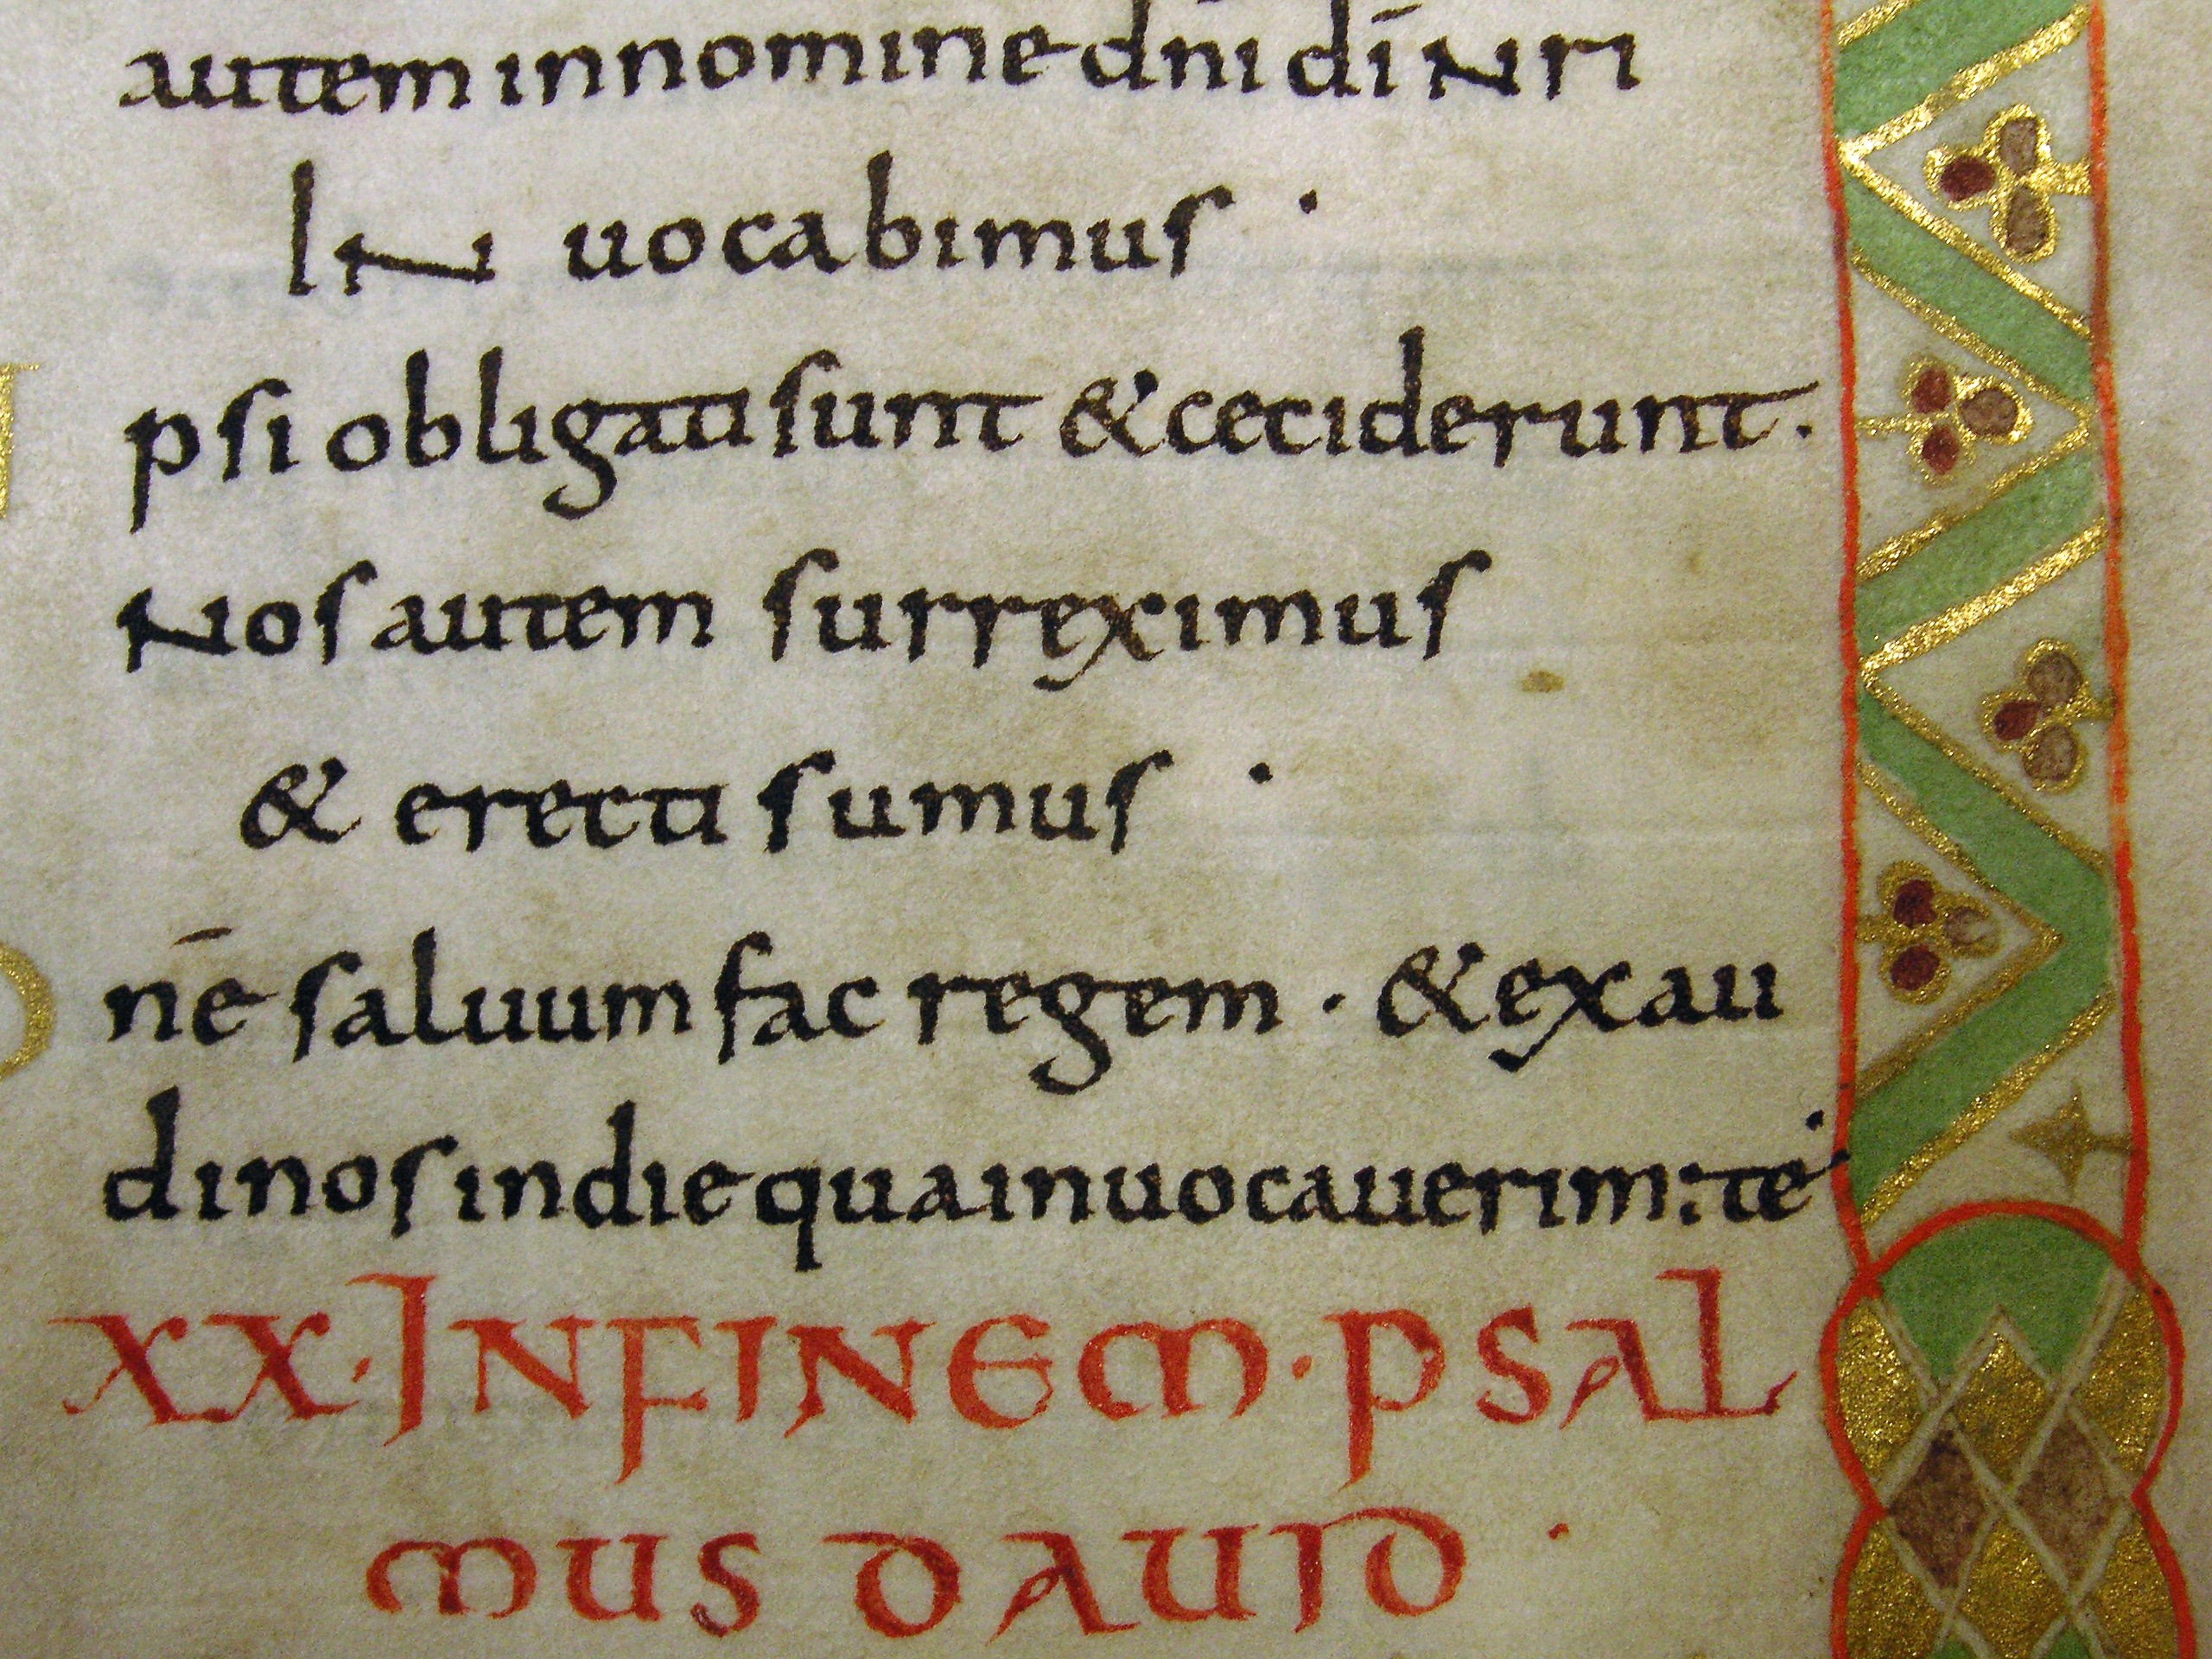 autem in nomine dn̄i dī nr̄i
In uocabimus ·
Ipsi obligati sunt & ceciderunt.
Nos autem surreximus
& erecti sumus ·
Dnē saluum fac regem · & exau
di nos in die qua inuocauerim: te·
XX· IN FINEM · PSAL
MUS DAUID ·